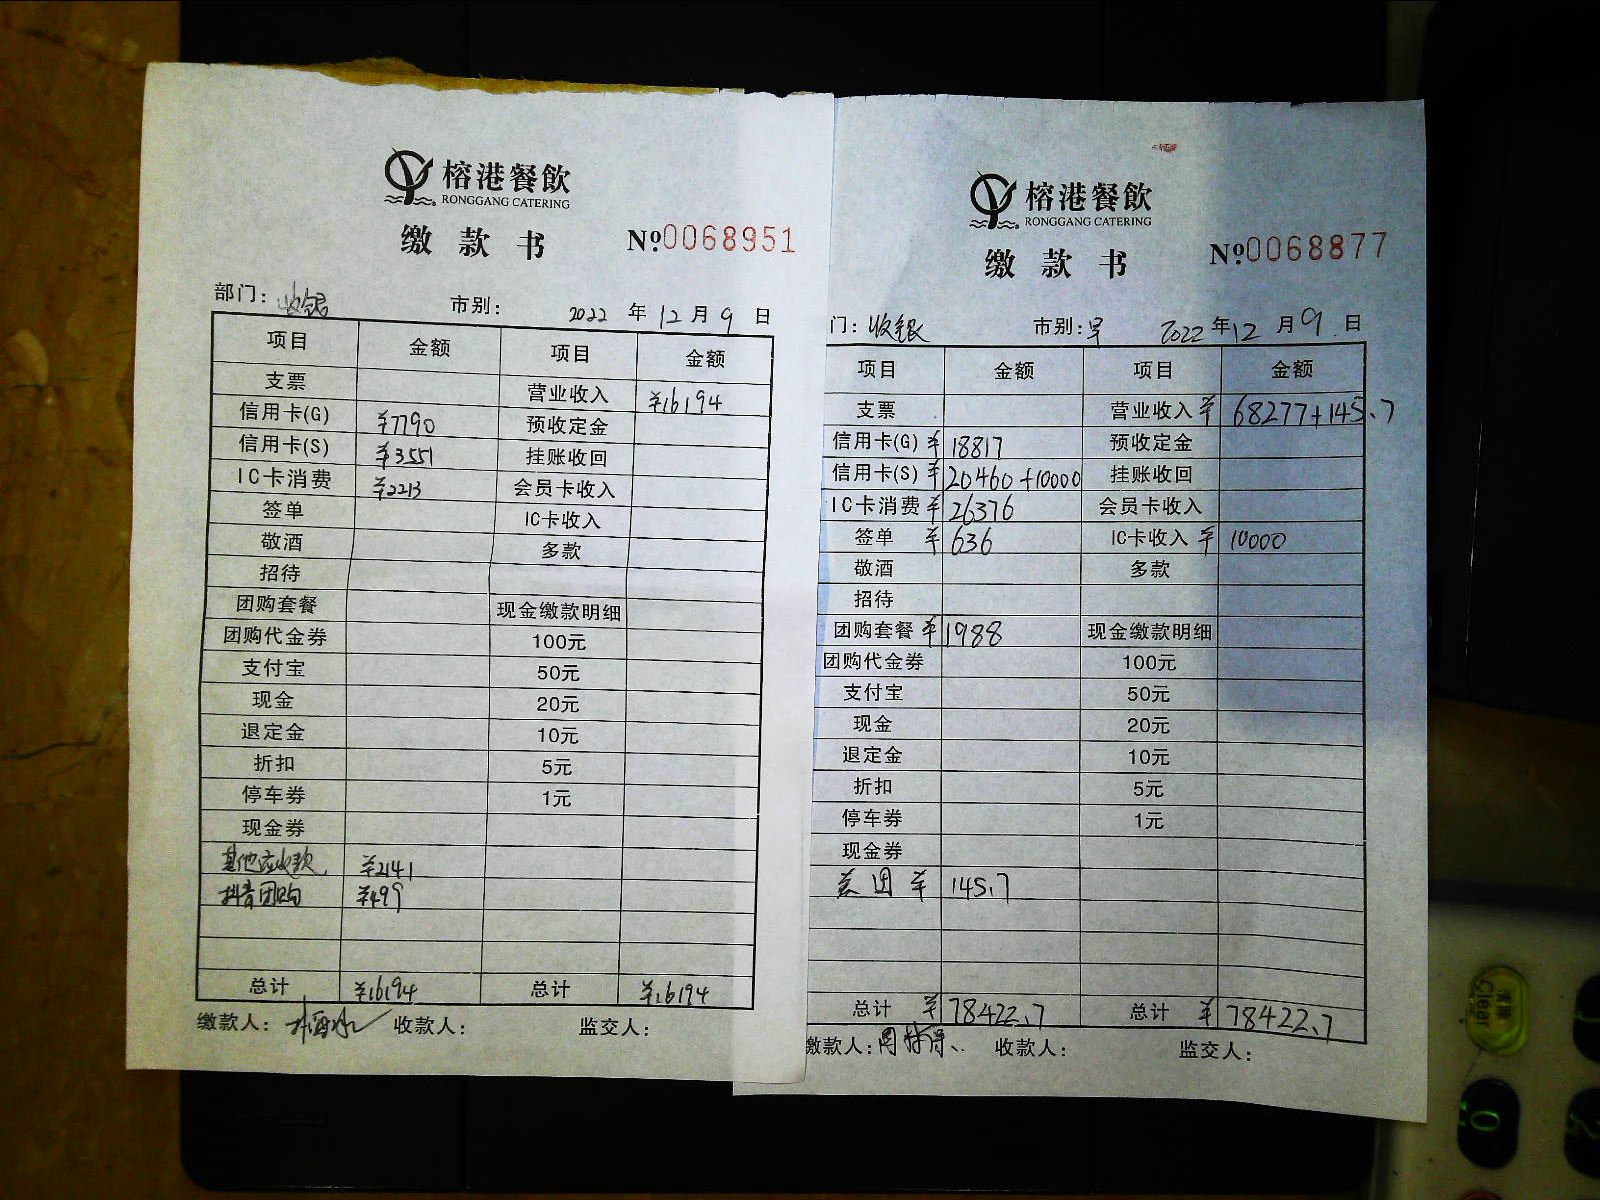 榕港餐飲
RONGGANG CATERING
缴款书 №0068951
部门：收银 市别： 2022 年 12 月 9 日
项目 金额 项目 金额
支票 营业收入 ¥16194
信用卡(G) ¥7790 预收定金
信用卡(S) ¥3551 挂账收回
IC卡消费 ¥2213 会员卡收入
签单 IC卡收入
敬酒 多款
招待
团购套餐 现金缴款明细
团购代金券 100元
支付宝 50元
现金 20元
退定金 10元
折扣 5元
停车券 1元
现金券
其他应收款 ¥2141
抖音团购 ¥499
总计 ¥16194 总计 ¥16194
缴款人： 收款人： 监交人：
榕港餐飲
RONGGANG CATERING
缴款书 №0068877
门：收银 市别：早 2022 年 12 月 9 日
项目 金额 项目 金额
支票 营业收入 ¥ 68277+145.7
信用卡(G) ¥ 18817 预收定金
信用卡(S) ¥ 20460+10000 挂账收回
IC卡消费 ¥ 26376 会员卡收入
签单 ¥ 636 IC卡收入 ¥ 10000
敬酒 多款
招待
团购套餐 ¥ 1988 现金缴款明细
团购代金券 100元
支付宝 50元
现金 20元
退定金 10元
折扣 5元
停车券 1元
现金券
美团 ¥ 145.7
总计 ¥ 78422.7 总计 ¥ 78422.7
缴款人： 收款人： 监交人：
清除
Clear
0